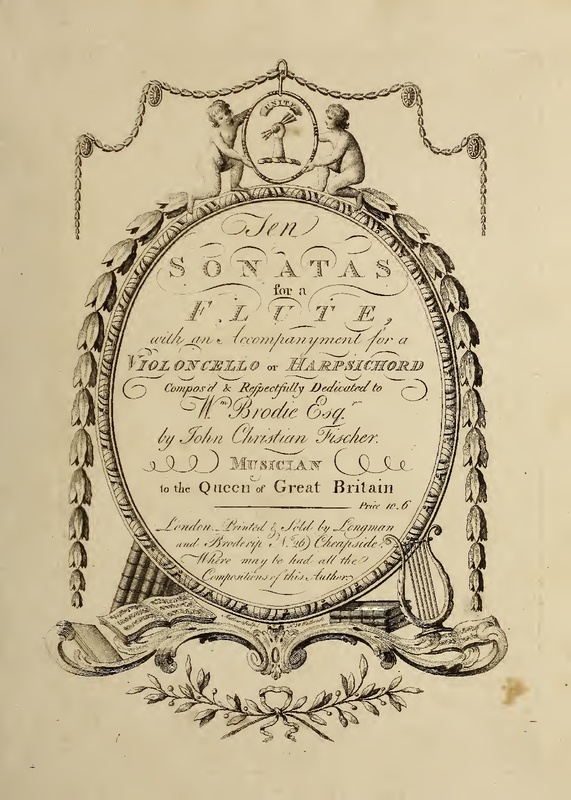 UNITE
Ten
SONATAS
for a
FLUTE,
with an Accompanyment for a
VIOLONCELLO or HARPSICHORD
Compos'd & Respectfully Dedicated to
Wm. Brodie Esqr.
by John Christian Fischer.
MUSICIAN
to the Queen of Great Britain
Price 10.6
London. Printed & Sold by Longman
and Broderip No. 26 Cheapside.
Where may be had all the
Compositions of this Author.